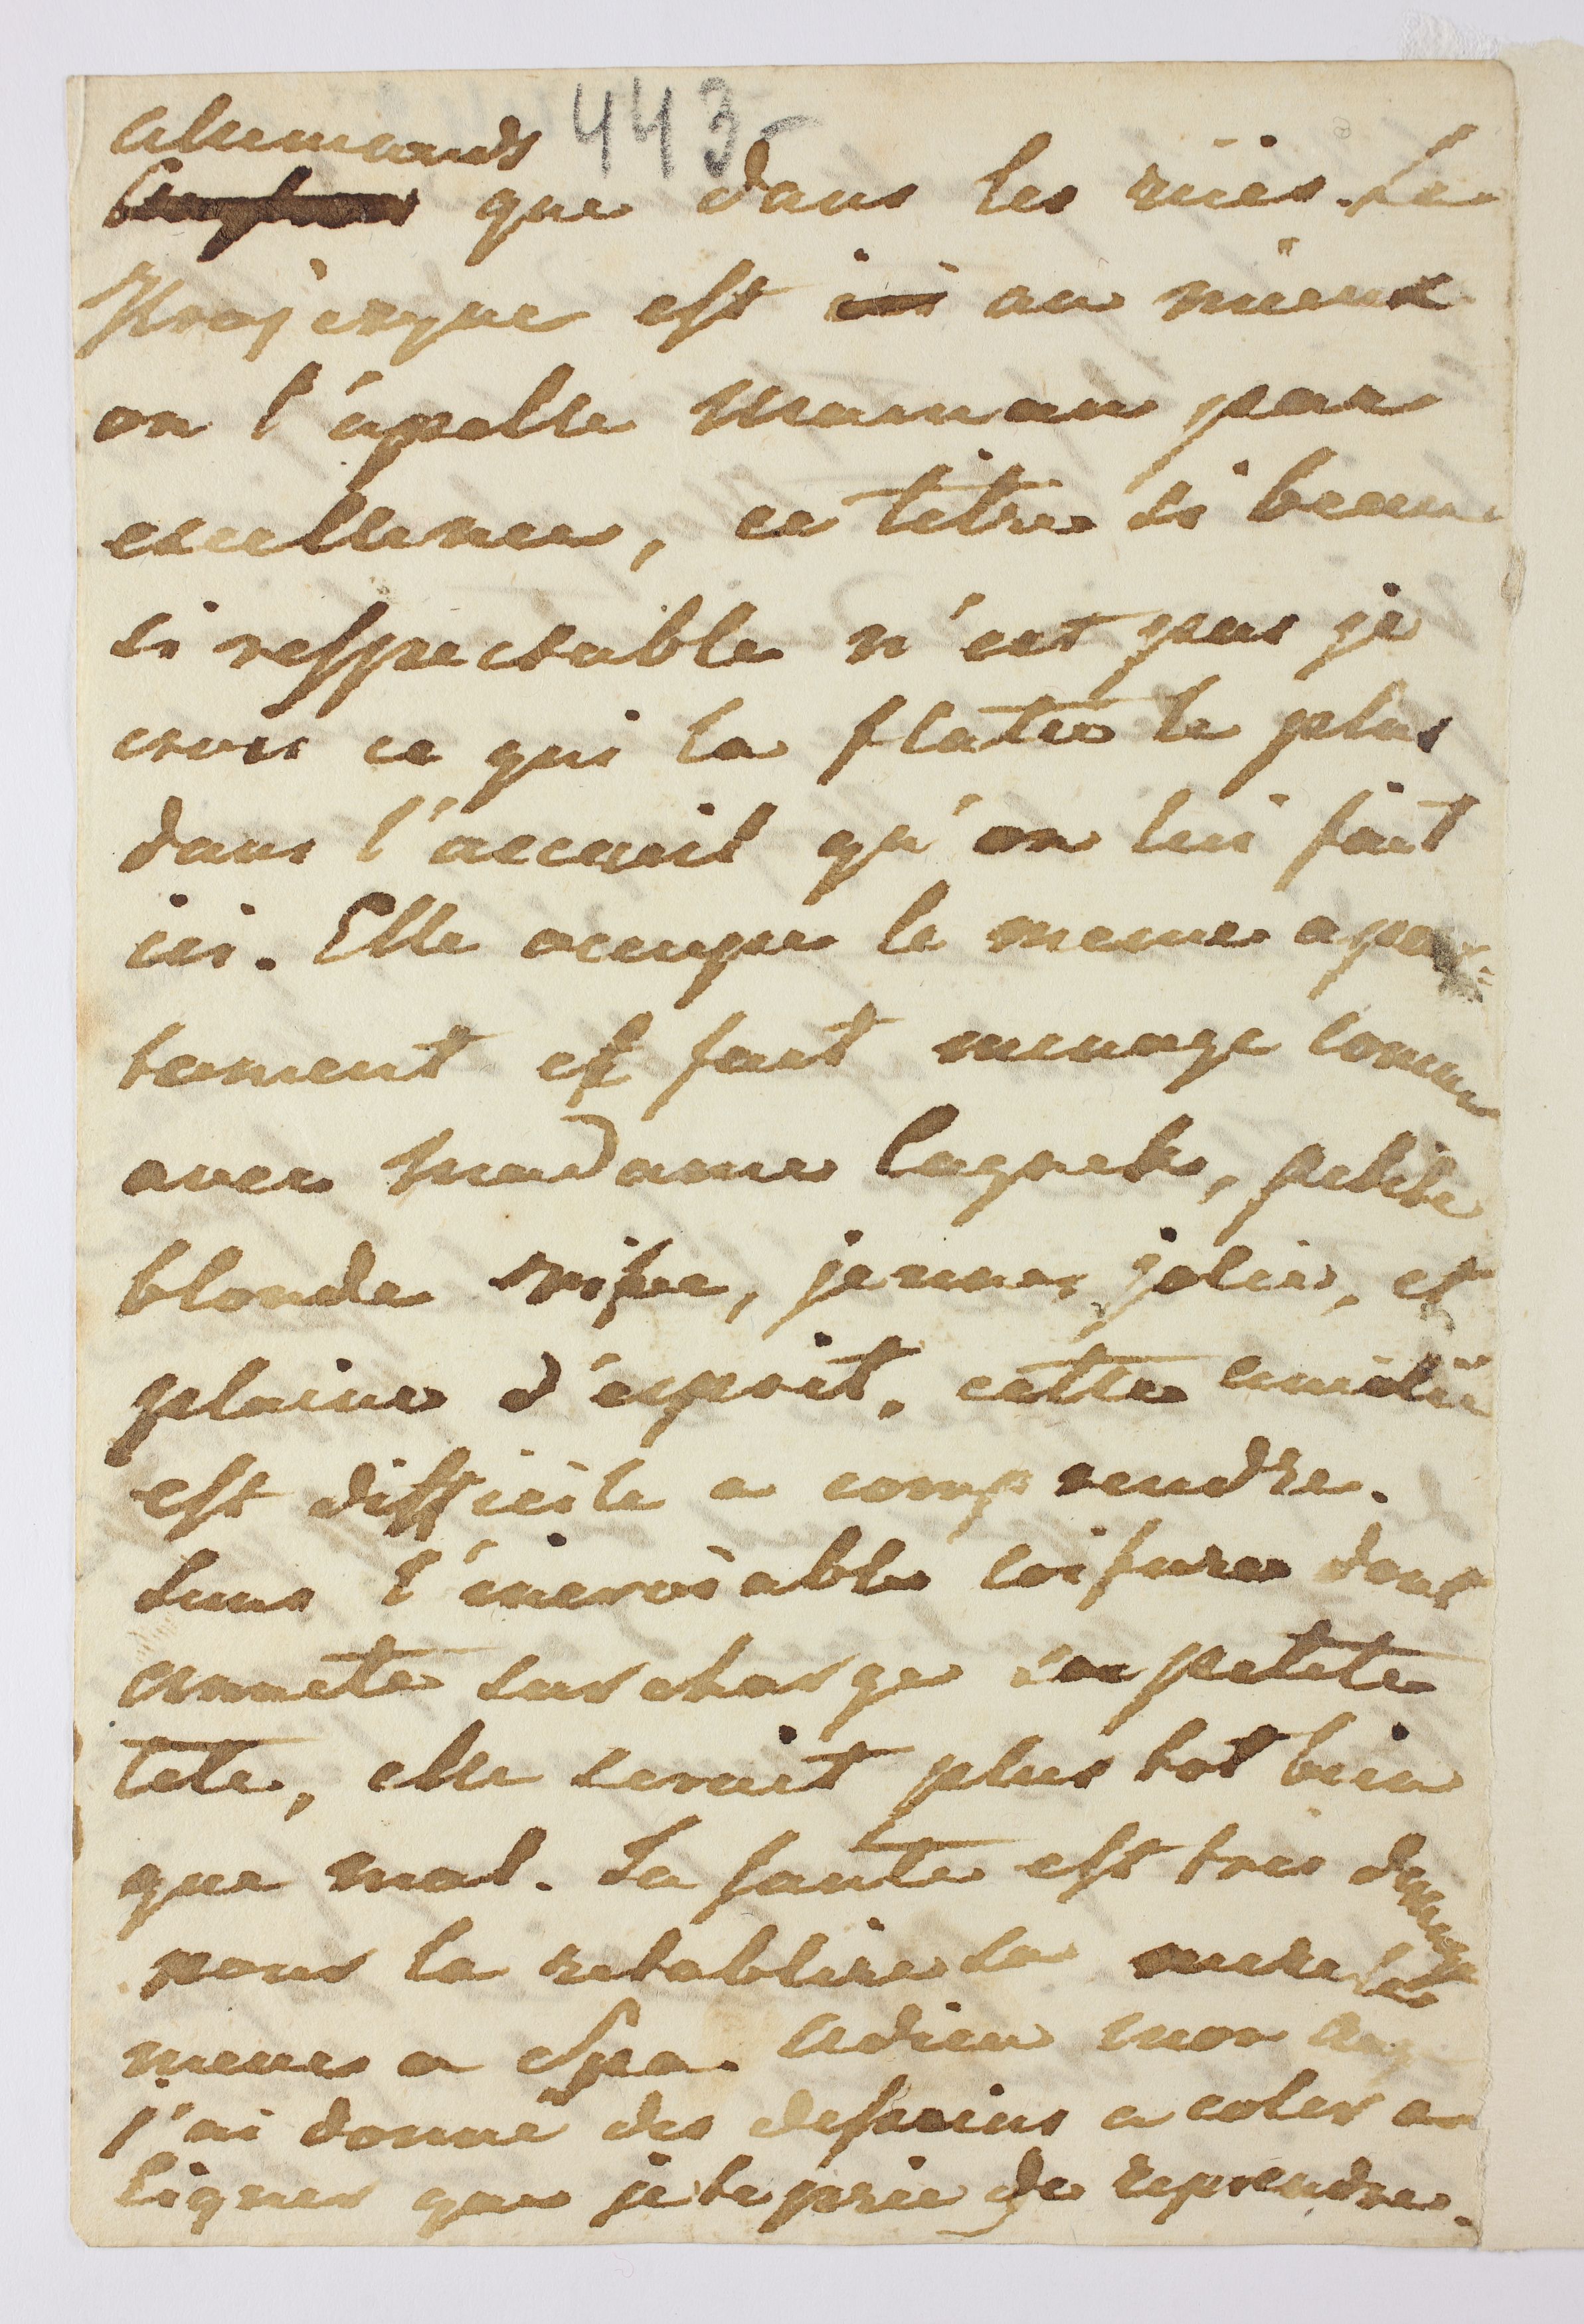 443
alemands
que dans les rües. La
est ici au mieux
on l'apelle maman par
excellence, ce titre si beau
si respectable n'est pas je
crois ce qui la flatte le plus
dans l'accueil qu'on lui fait
ici. Elle occupe le meme apar-
tement et fait menage comun
avec madame, petite
blonde, jeune, jolie, et
plaine d'esprit, cette
est difficile a comprendre.
sans l'incroiable coifure dont
annete surcharge sa petite
tete, elle seroit plus tot bien
que mal. Sa santé est tres
pour la retablire sa mere la
mene a Spa. adieu mon
j'ai donné des dessins a coler a
Ligner que je te prie de reprendre.